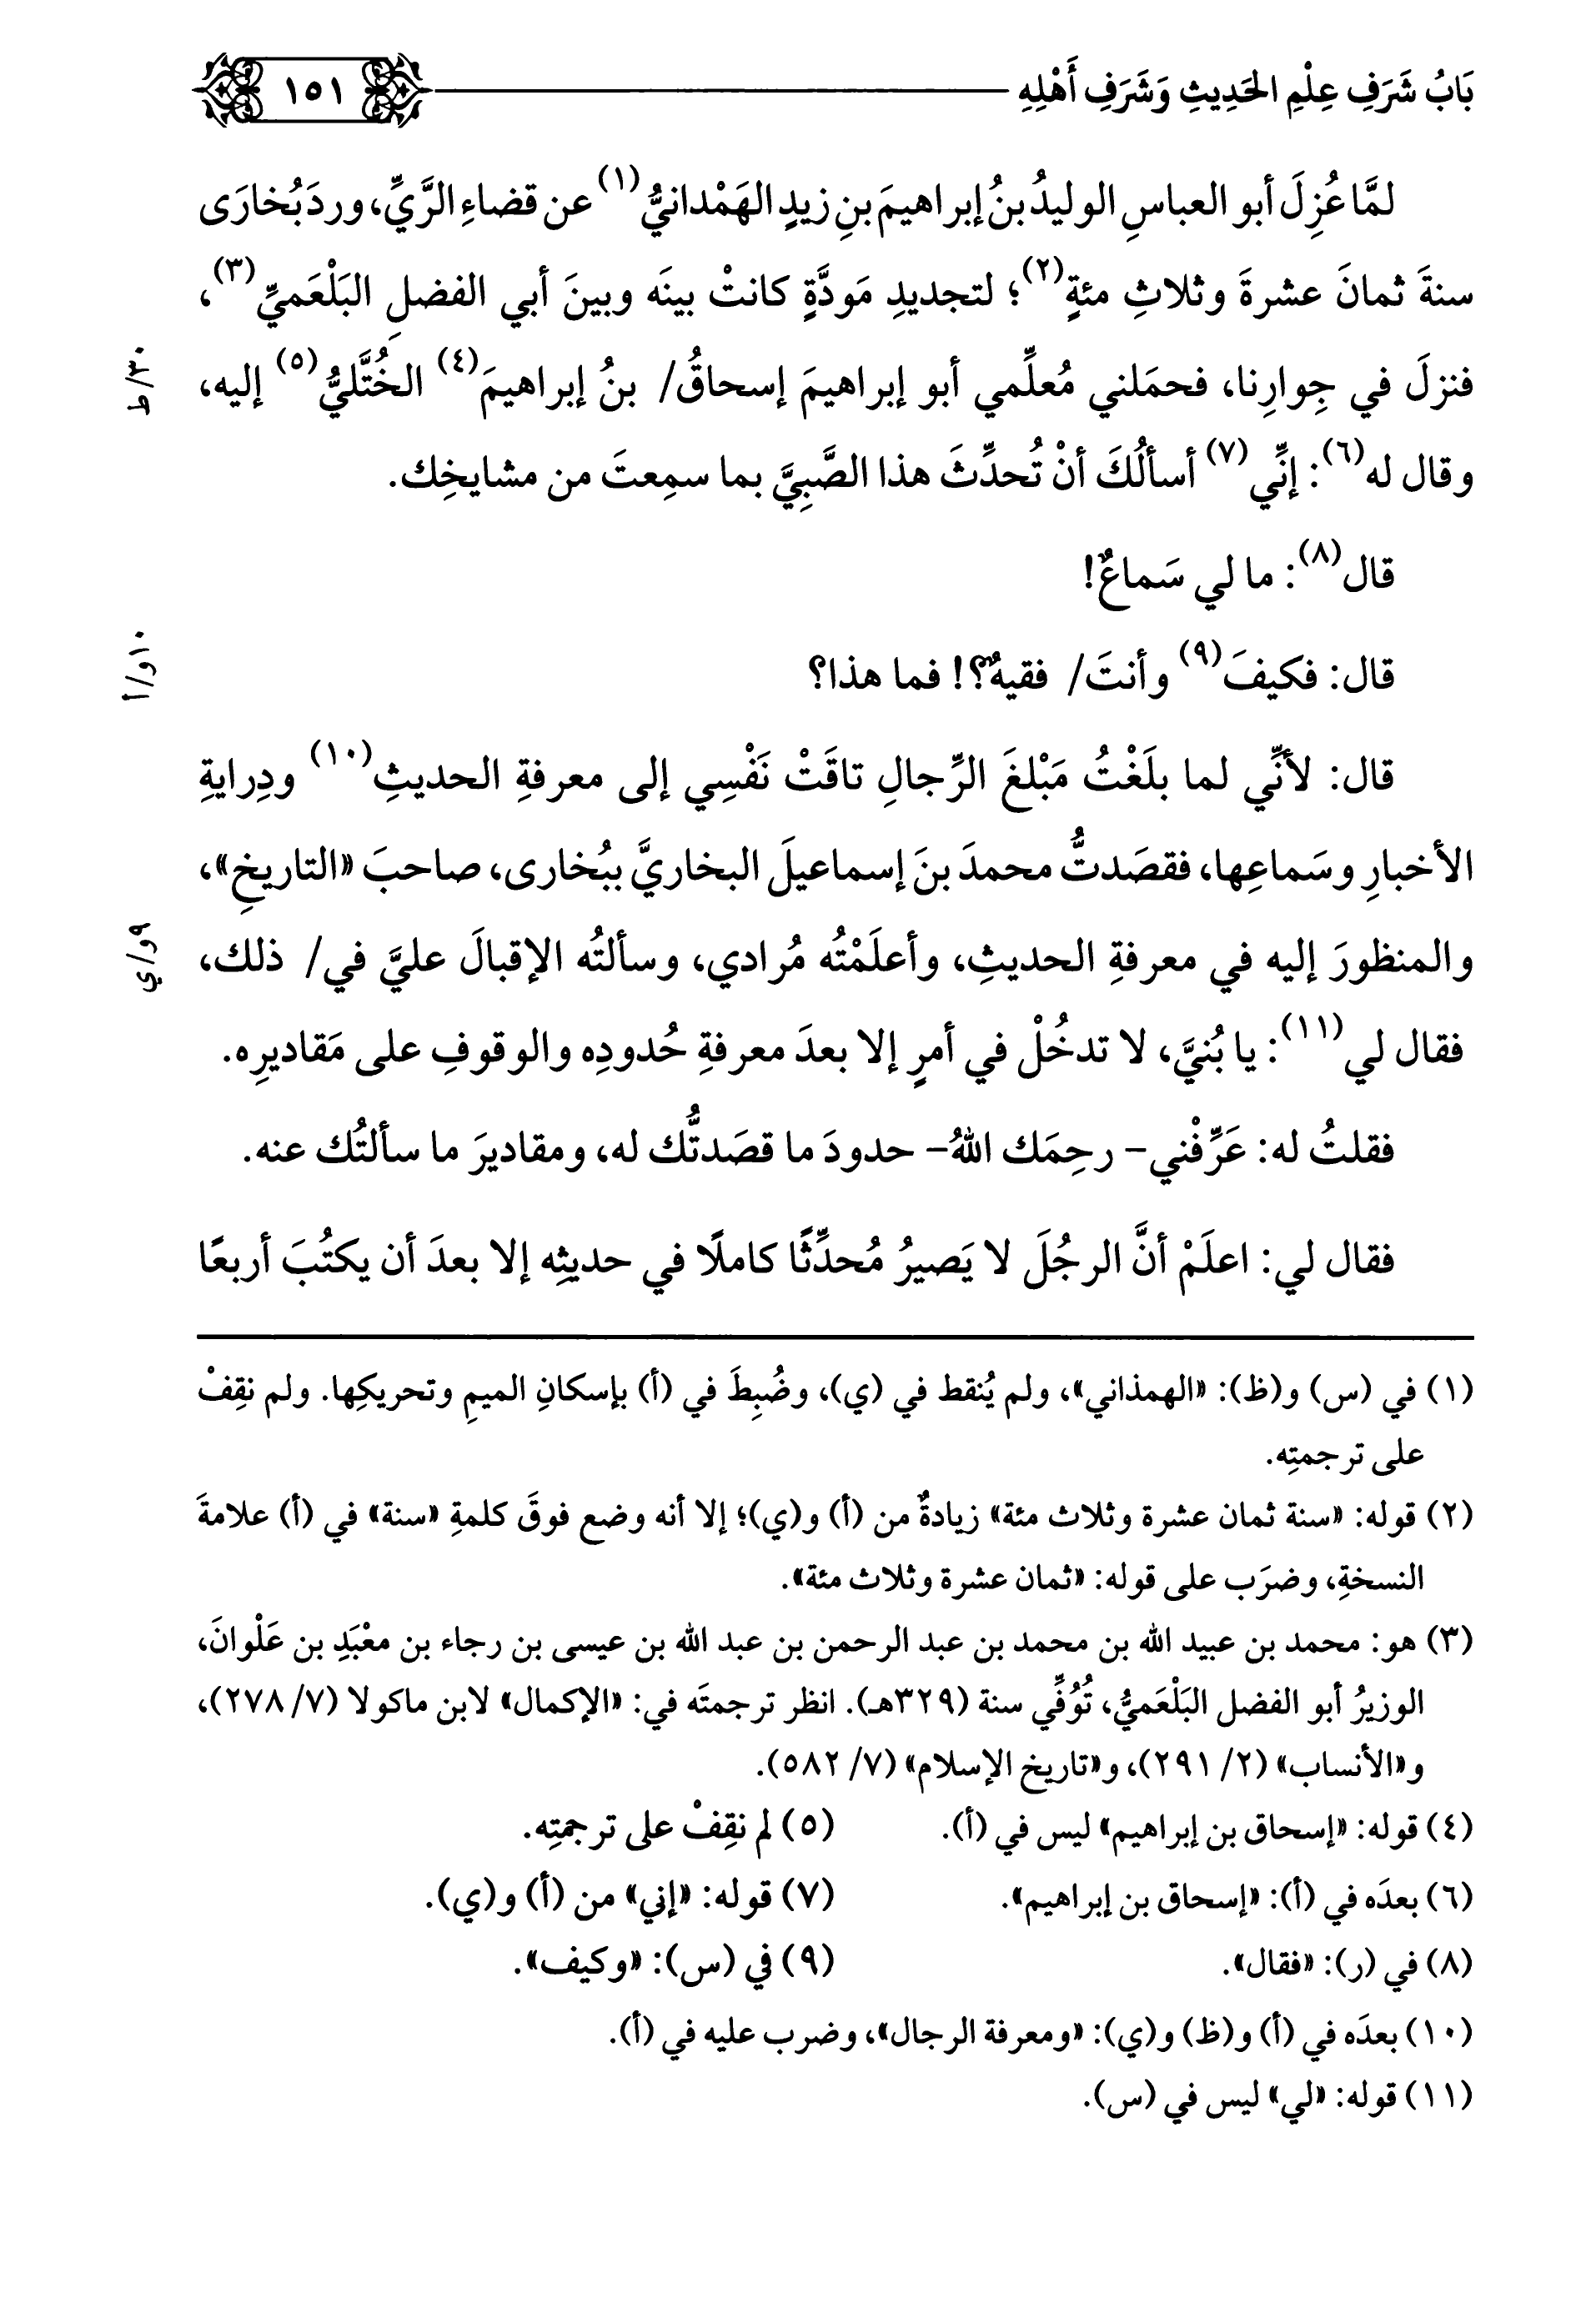 بَابُ شَرَفِ عِلْمِ الحَدِيثِ وَشَرَفِ أَهْلِهِ ١٥١
لمَّا عُزِلَ أبو العباسِ الوليدُ بنُ إبراهيمَ بنِ زيدٍ الهَمْدانيُّ(١) عن قضاءِ الرَّيِّ، وردَ بُخارَى
سنةَ ثمانَ عشرةَ وثلاثِ مئةٍ(٢)؛ لتجديدِ مَودَّةٍ كانتْ بينَه وبينَ أبي الفضلِ البَلْعَميِّ(٣)،
فنزلَ في جِوارِنا، فحمَلني مُعلِّمي أبو إبراهيمَ إسحاقُ/ بنُ إبراهيمَ(٤) الخُتَّليُّ(٥) إليه،
٣٠/ظ
وقال له(٦): إنِّي(٧) أسألُكَ أنْ تُحدِّثَ هذا الصَّبِيَّ بما سمِعتَ من مشايخِك.
قال(٨): ما لي سَماعٌ!
قال: فكيفَ(٩) وأنتَ/ فقيهٌ؟! فما هذا؟
١٠و/أ
قال: لأنِّي لما بلَغْتُ مَبْلغَ الرِّجالِ تاقَتْ نَفْسِي إلى معرفةِ الحديثِ(١٠) ودِرايةِ
الأخبارِ وسَماعِها، فقصَدتُّ محمدَ بنَ إسماعيلَ البخاريَّ ببُخارى، صاحبَ «التاريخِ»،
والمنظورَ إليه في معرفةِ الحديثِ، وأعلَمْتُه مُرادي، وسألتُه الإقبالَ عليَّ في/ ذلك،
٩و/ي
فقال لي(١١): يا بُنيَّ، لا تدخُلْ في أمرٍ إلا بعدَ معرفةِ حُدودِه والوقوفِ على مَقاديرِه.
فقلتُ له: عَرِّفْني- رحِمَك اللهُ- حدودَ ما قصَدتُّك له، ومقاديرَ ما سألتُك عنه.
فقال لي: اعلَمْ أنَّ الرجُلَ لا يَصيرُ مُحدِّثًا كاملًا في حديثِه إلا بعدَ أن يكتُبَ أربعًا
(١) في (س) و(ظ): «الهمذاني»، ولم يُنقط في (ي)، وضُبِطَ في (أ) بإسكانِ الميمِ وتحريكِها. ولم نقِفْ
على ترجمتِه.
(٢) قوله: «سنة ثمان عشرة وثلاث مئة» زيادةٌ من (أ) و(ي)؛ إلا أنه وضع فوقَ كلمةِ «سنة» في (أ) علامةَ
النسخةِ، وضرَب على قوله: «ثمان عشرة وثلاث مئة».
(٣) هو: محمد بن عبيد الله بن محمد بن عبد الرحمن بن عبد الله بن عيسى بن رجاء بن معْبَدِ بن عَلْوانَ،
الوزيرُ أبو الفضل البَلْعَميُّ، تُوُفِّي سنة (٣٢٩هـ). انظر ترجمتَه في: «الإكمال» لابن ماكولا (٧/ ٢٧٨)،
و«الأنساب» (٢/ ٢٩١)، و«تاريخ الإسلام» (٧/ ٥٨٢).
(٤) قوله: «إسحاق بن إبراهيم» ليس في (أ). (٥) لم نقِفْ على ترجمتِه.
(٦) بعدَه في (أ): «إسحاق بن إبراهيم». (٧) قوله: «إني» من (أ) و(ي).
(٨) في (ر): «فقال». (٩) في (س): «وكيف».
(١٠) بعدَه في (أ) و(ظ) و(ي): «ومعرفة الرجال»، وضرب عليه في (أ).
(١١) قوله: «لي» ليس في (س).